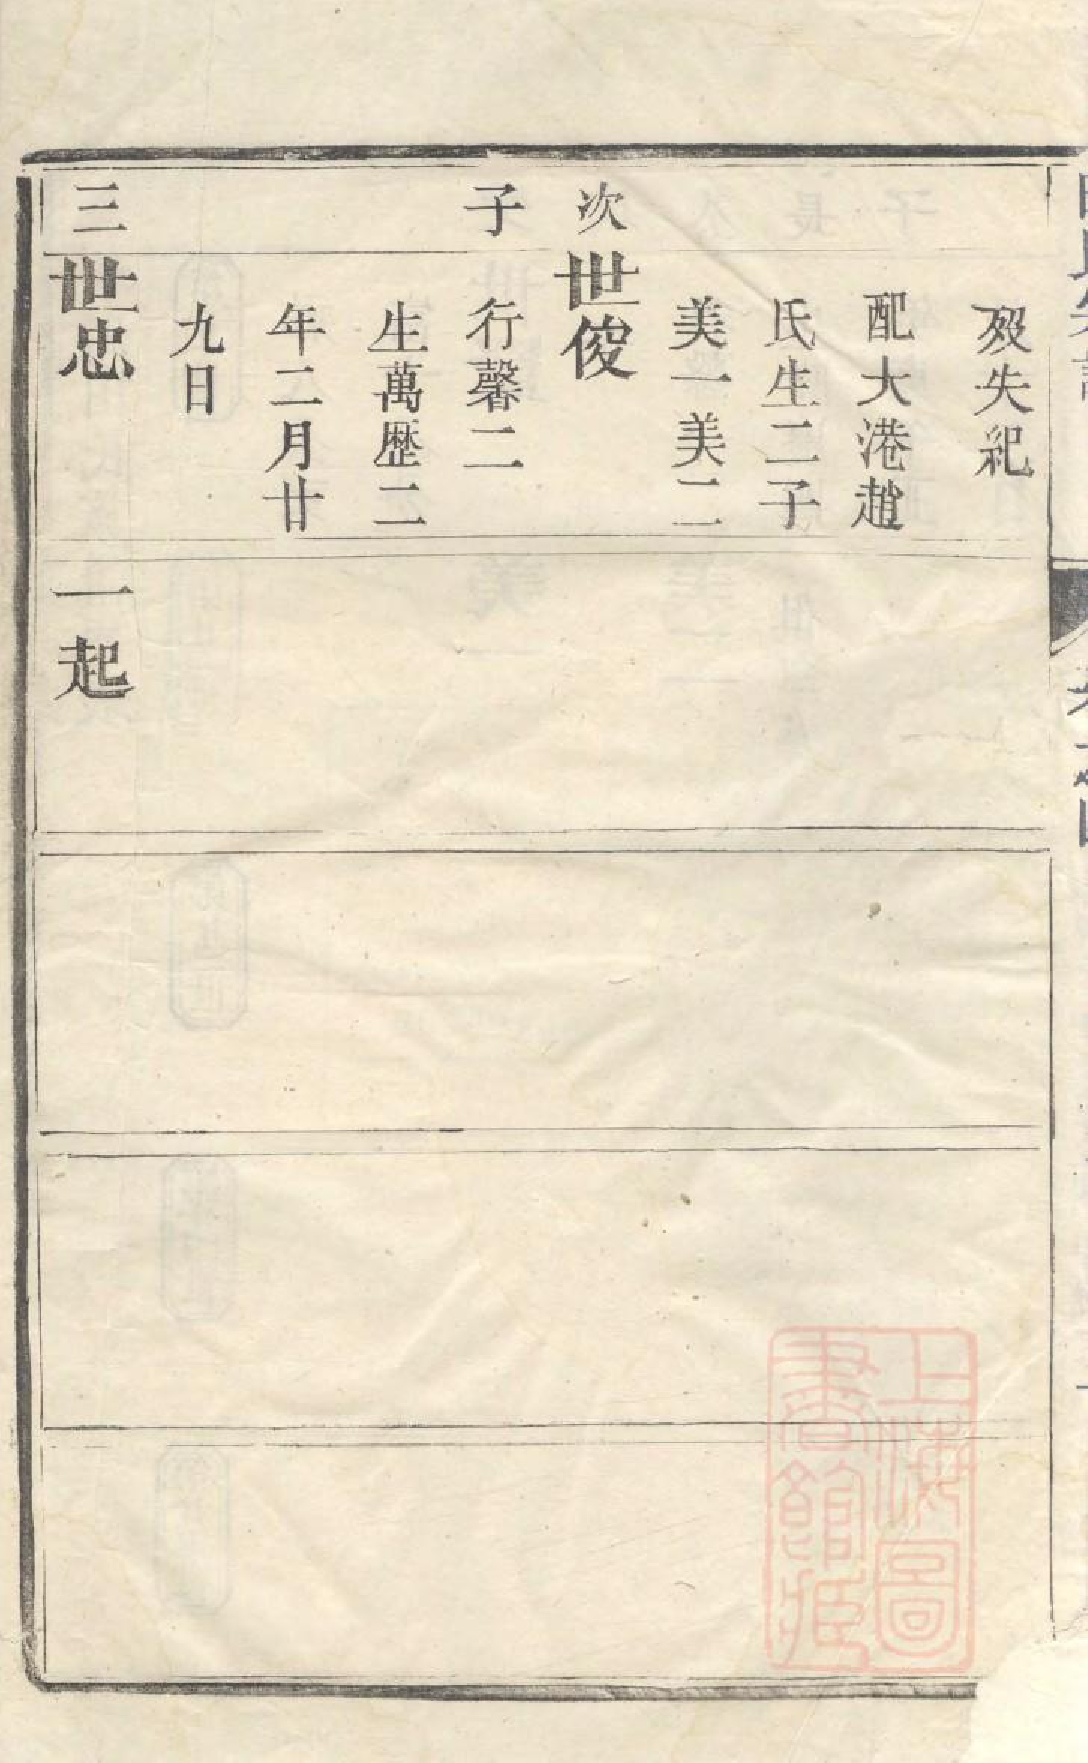 歿失紀
配大港趙
氏生二子
美一美二
次世俊
子行馨二
生萬歷二
年二月廿
九日
三世忠
一起
上海圖
書館藏